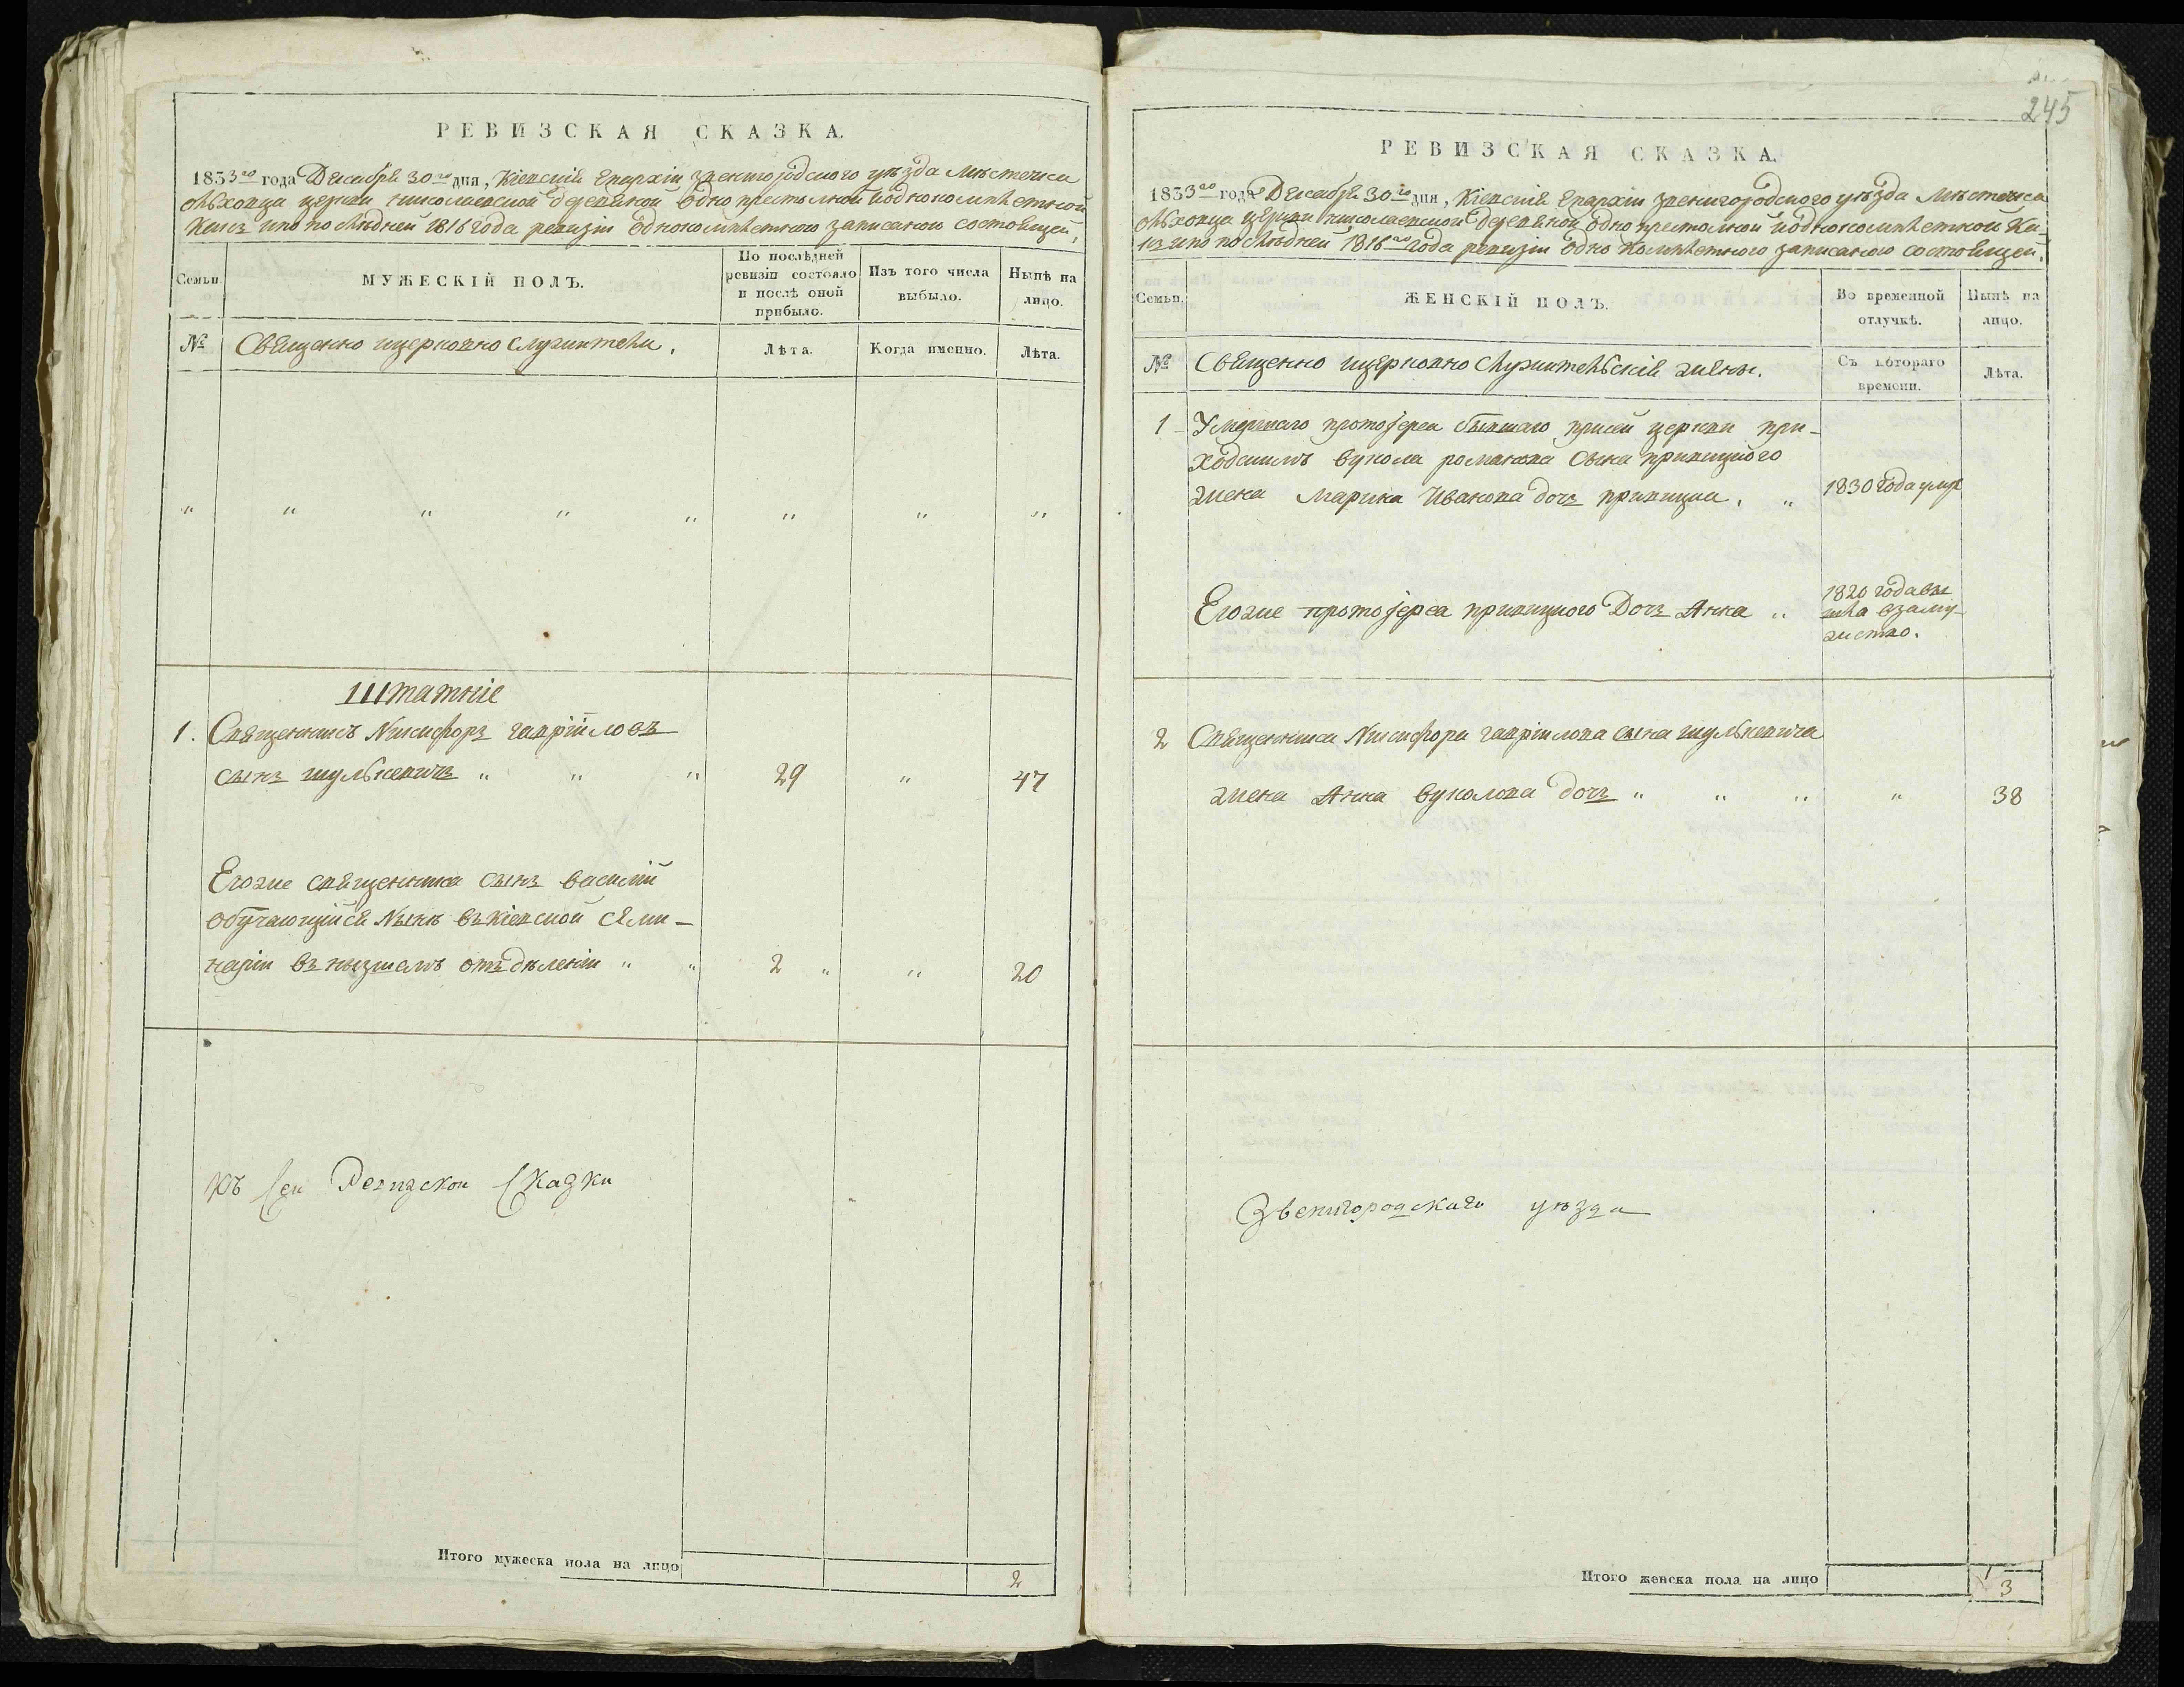 РЕВИЗСКАЯ СКАЗКА.
1833го года Декабря 30го дня, Кіевскія Епархіи Звенигородского уѣзда Мѣстечка
олъховца церкви николаевской деревяной одно престолной иоднокомплетной
Каизъ ипо послѣдней 1816 года ревизіи однокомплетного записаною состоящей,
Семьи.
МУЖЕСКІЙ ПОЛЪ.
По послѣдней ревизіи состояло и послѣ оной прибыло.
Изъ того числа выбыло.
Нынѣ на лицо.
№
Священно ицерковно служители.
Лѣта.
Когда именно.
Лѣта.
" " " " " " " "
Штатніе
1. Священникъ Никифоръ гавріиловъ
сынъ шулькевичъ " " " 29 " 47
Егоже священника сынъ василій
обучающійся Нынѣ въкіевской Семи-
наріи въ низшемъ отъдѣленіи " " 2 " " 20
Къ Сей Ревизской Сказки
Итого мужеска пола на лицо 2
245
РЕВИЗСКАЯ СКАЗКА.
1833го года Декабря 30го дня, Кіевскія Епархіи звенигородского уѣзда Мѣстечка
олъховца церкви николаевской деревяной одно престолной иоднокомплетной Ка-
изъ ипо послѣдней 1816го года ревизіи одно Комплетного записаною состоящей.
Семьи.
ЖЕНСКІЙ ПОЛЪ.
Во временной отлучкѣ.
Нынѣ на лицо.
№
Священно ицерковно служительскія жены.
Съ котораго времени.
Лѣта.
1 Умершаго протоіерея бывшаго присей церкви при-
ходскимъ вукола романова сына
жена Марина Иванова дочъ " 1830 года умре
Егоже протоіерея Дочъ Анна " 1820 года вы
шла взаму-
жество.
2 Священника Никифора гавріилова сына шулькевича
жена Анна вуколова дочъ " " " " 38
Звенигородскаго уѣзда
Итого женска пола на лицо 1
3